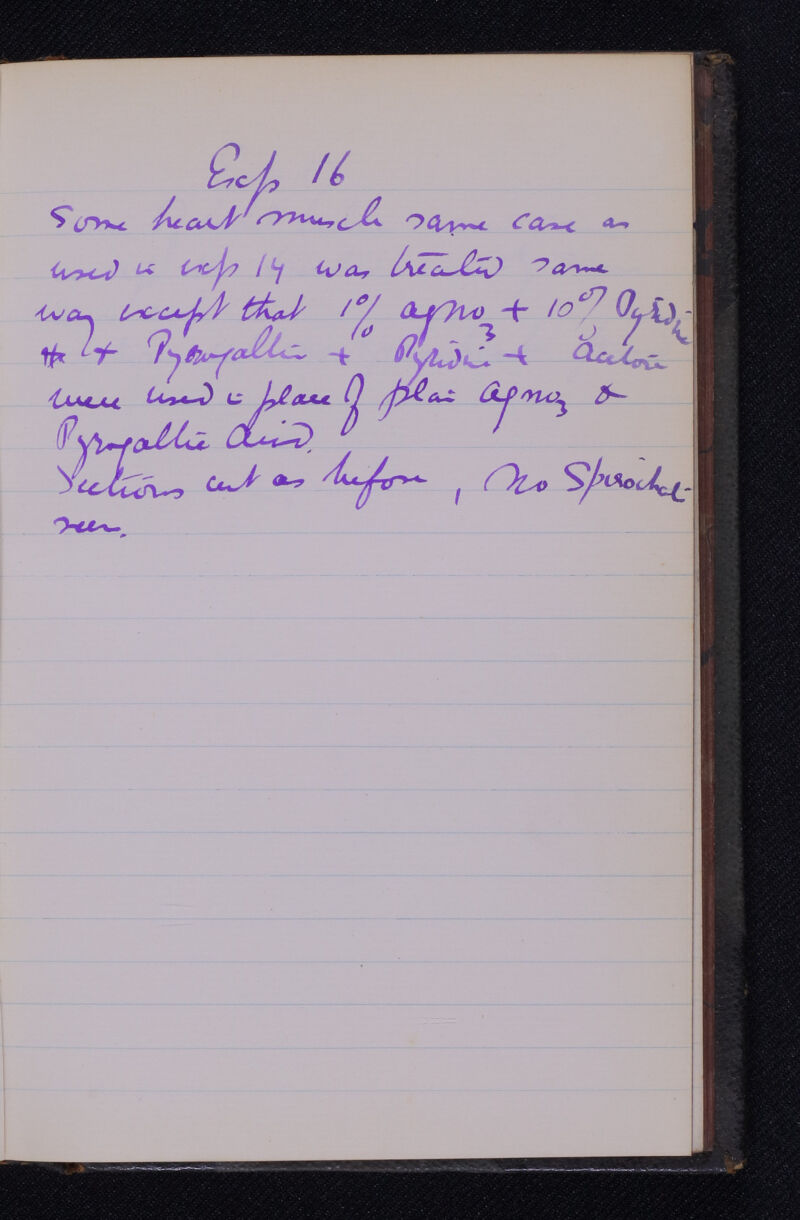 Exp 16
Some heart muscle same case as
used in exp 14 was treated same
way except that 1% AgNO3 + 10% Pyridine
+ Pyrogallic + Pyridine + Acetone
were used in place of plain AgNO3 &
Pyrogallic Acid.
Sections cut as before, No Spirochet
seen.